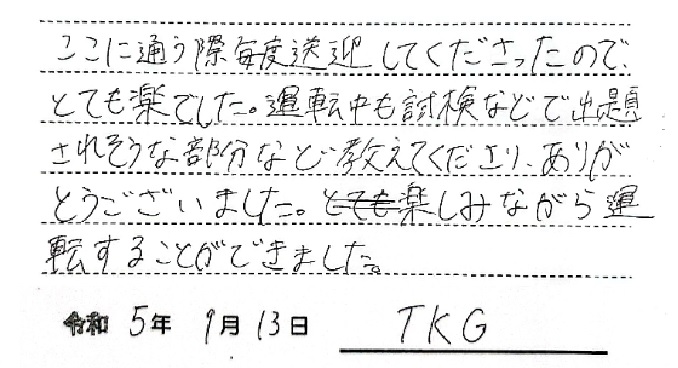 ここに通う際毎度送迎してくださったので、
とても楽でした。運転中も試検などで出題
されそうな部分など教えてくださり、ありが
とうございました。とても楽しみながら運
転することができました。
令和 5年 9月 13日 TKG